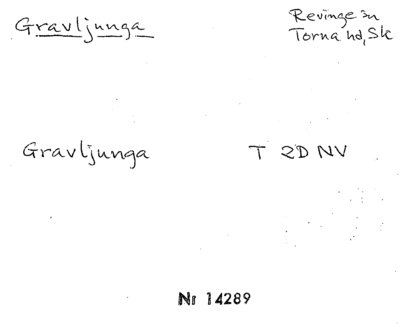 Gravljunga
Revinge sn
Torna hd, Sk
Gravljunga T 2D NV
Nr 14289